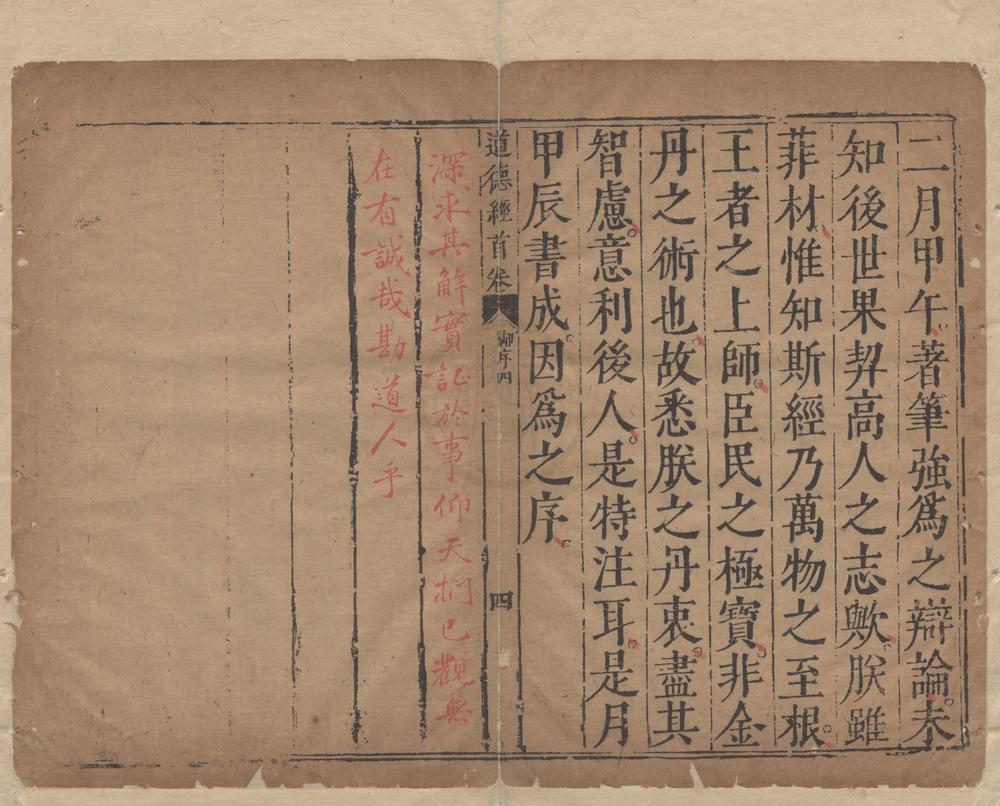 二月甲午。著筆強爲之辯論。未
知後世果契高人之志歟。朕雖
菲材。惟知斯經乃萬物之至根。
王者之上師。臣民之極寶。非金
丹之術也。故悉朕之丹衷。盡其
智慮。意利後人。是特注耳。是月
甲辰書成。因爲之序。
道德經首卷 御序四 四
深求其解實記於事仰天捫已觀無
在有誠哉勘道人乎